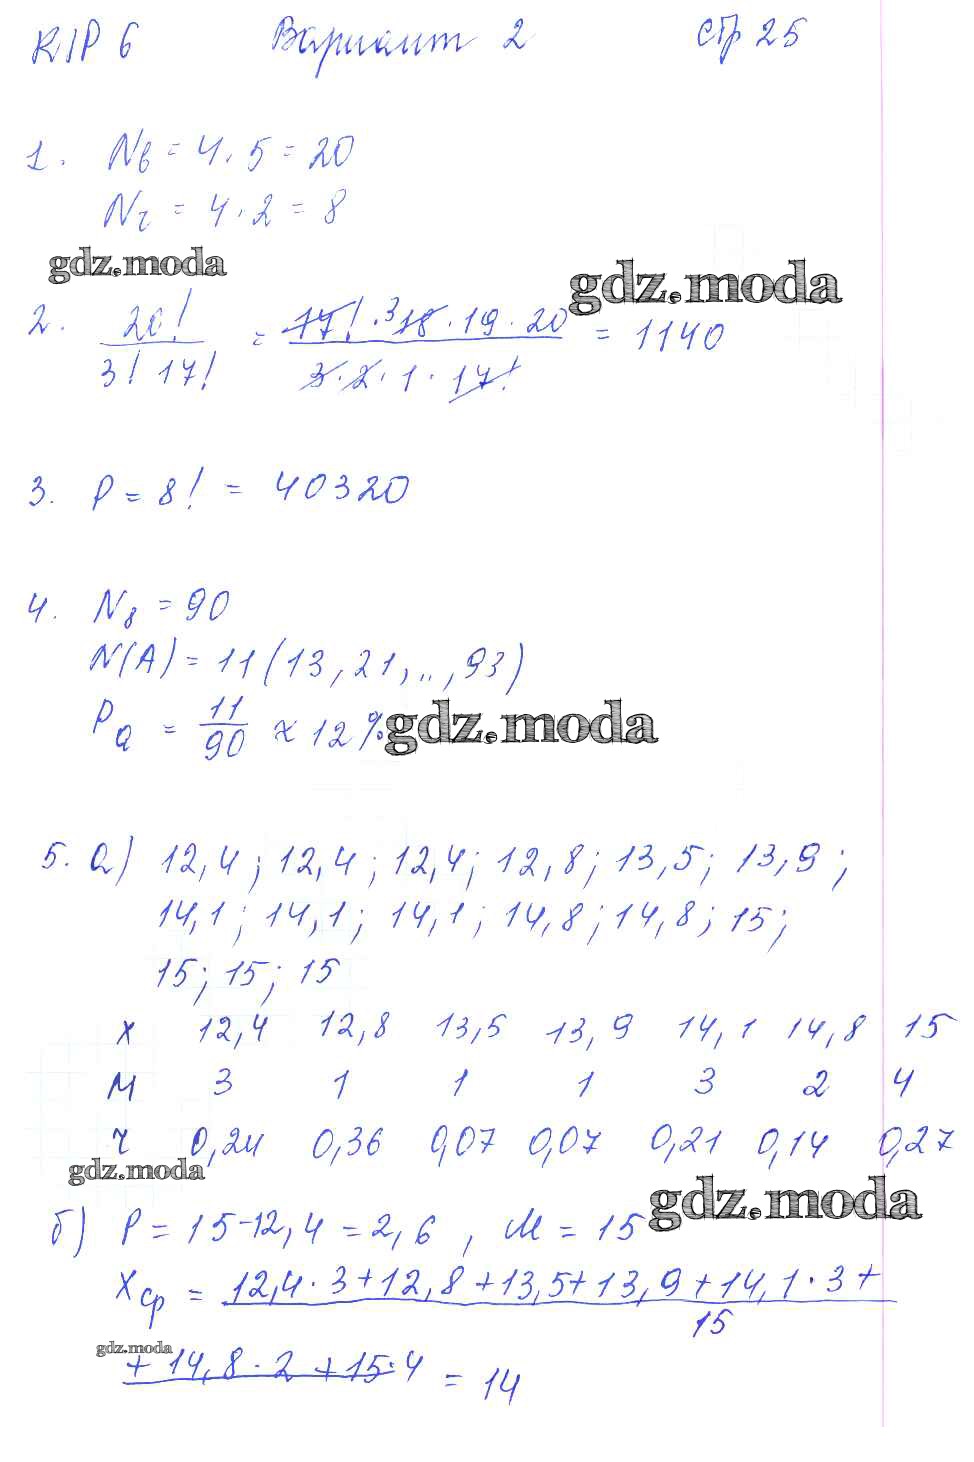 К/Р 6 Вариант 2 стр 25
1. Nв = 4 · 5 = 20
Nг = 4 · 2 = 8
gdz.moda
gdz.moda
2. 20! / 3! 17! = 17! · ³18 · 19 · 20 / 3 · 2 · 1 · 17! = 1140
3. P = 8! = 40320
4. N₈ = 90
N(A) = 11 (13, 21, .., 93)
Pa = 11/90 ≈ 12% gdz.moda
5. а) 12,4; 12,4; 12,4; 12,8; 13,5; 13,9;
14,1; 14,1; 14,1; 14,8; 14,8; 15;
15; 15; 15
X 12,4 12,8 13,5 13,9 14,1 14,8 15
М 3 1 1 1 3 2 4
ч 0,21 0,36 0,07 0,07 0,21 0,14 0,27
gdz.moda
gdz.moda
б) P = 15-12,4 = 2,6, M = 15
Xср = 12,4 · 3 + 12,8 + 13,5 + 13,9 + 14,1 · 3 +
15
gdz.moda
+ 14,8 · 2 + 15 · 4 = 14